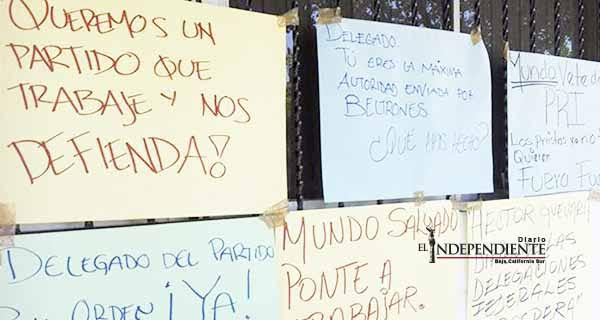 QUEREMOS UN
PARTIDO QUE
TRABAJE Y NOS
DEFIENDA!
DELEGADO.
TÚ ERES LA MÁXIMA
AUTORIDAD ENVIADA POR
BELTRONES
¿QUÉ HAS HECHO?
Mundo Vete de
PRI
Los priistas no
Quieren
Fuera Fue
DELEGADO DEL PARTIDO
ORDEN ¡YA!
MUNDO SALGADO
PONTE A
TRABAJAR.
HÉCTOR
LAS
DELEGACIONES
FEDERALES
Diario
EL INDEPENDIENTE
Baja California Sur